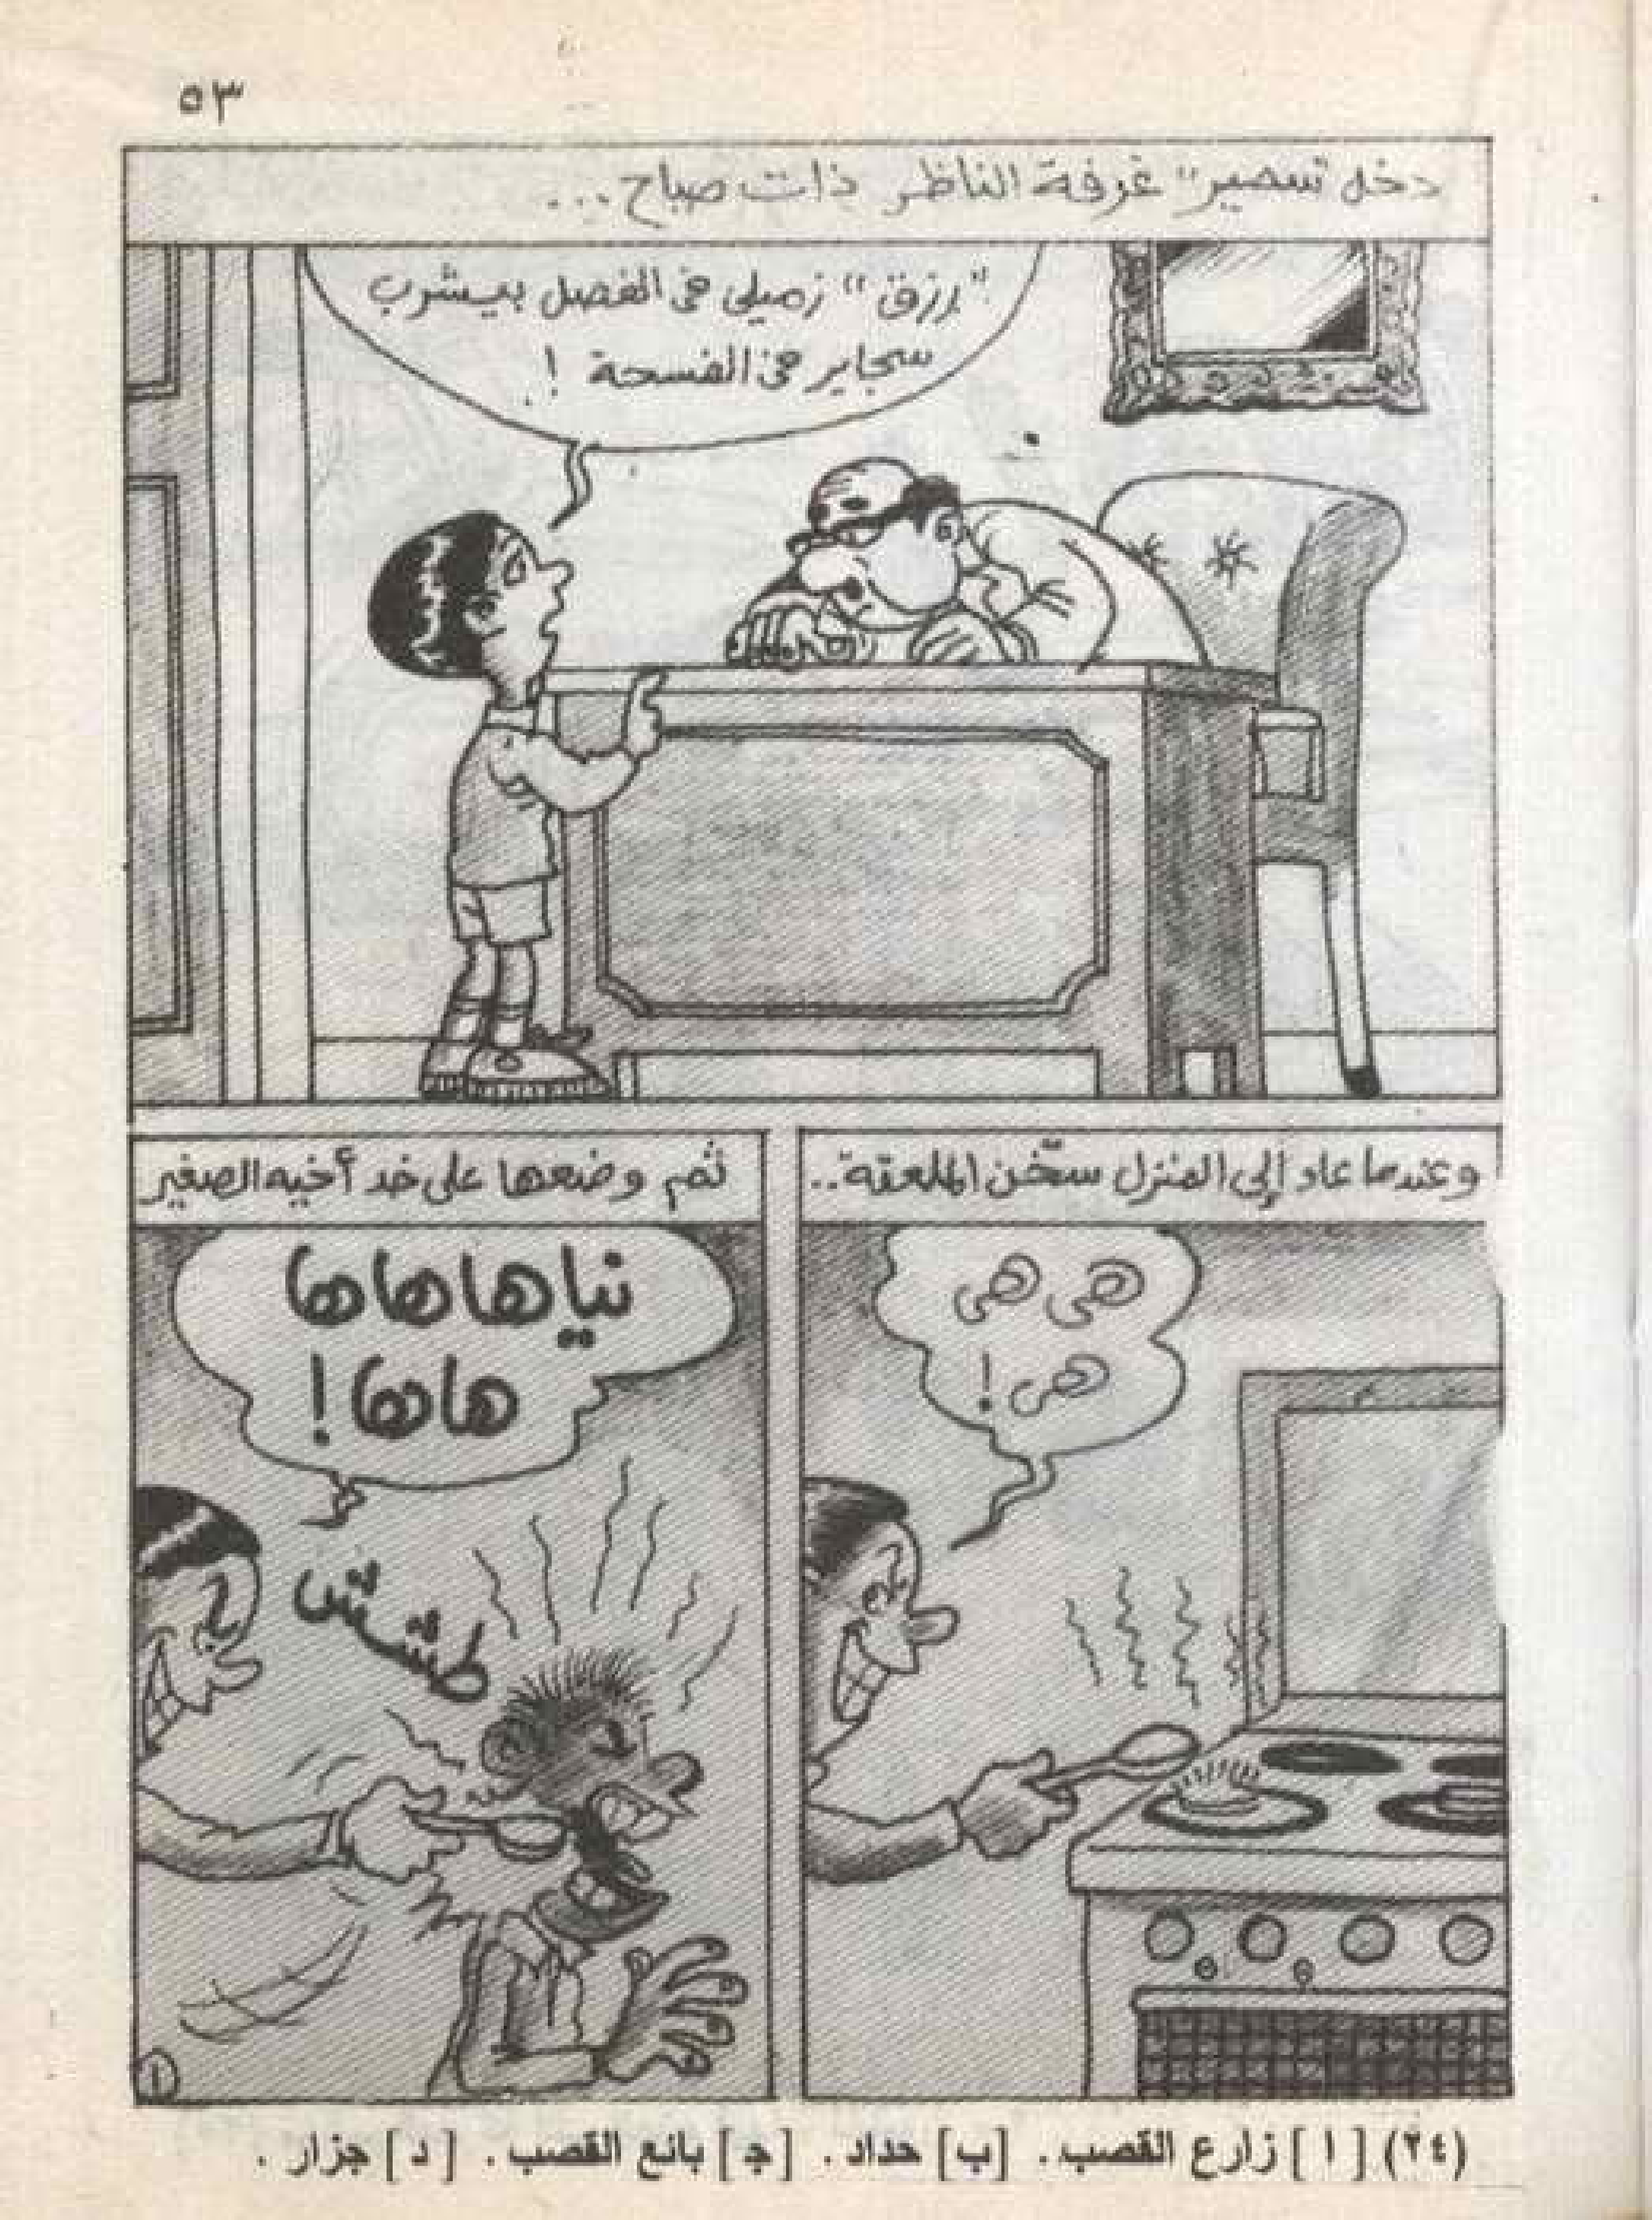 ٥٣
دخل "سمير" غرفة الناظر ذات صباح...
"رزق" زميلي في الفصل بيشرب
سجاير في الفسحة !
وعندما عاد إلى المنزل سخّن الملعقة..
هي هي
هي !
ثم وضعها على خد أخيه الصغير
نياهاهاها
هاها !
طششش
١
(٢٤) [ ا ] زارع القصب . [ب] حداد . [جـ] بائع القصب . [ د ] جزار .